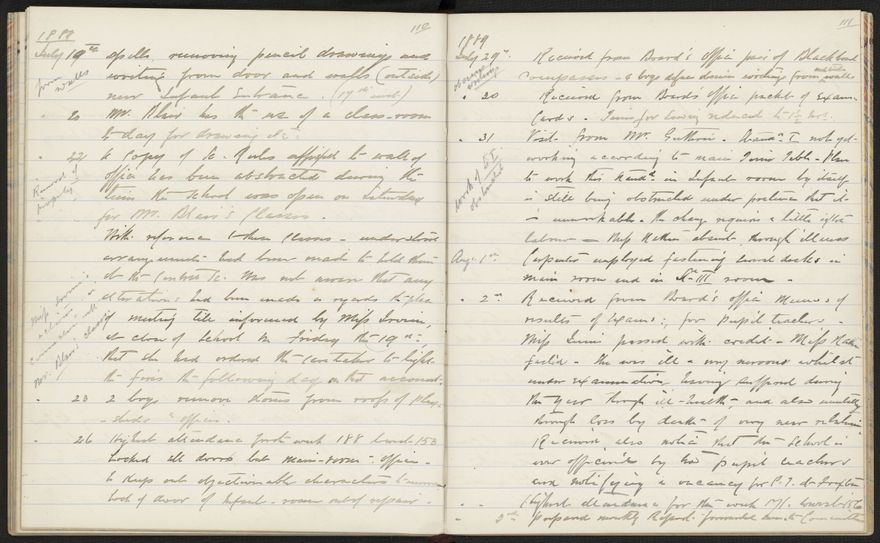 110
1889
July 19th spells removing pencil drawings and
writing from door and walls (outside)
from walls
near Infant Entrance. (17th inst)
20 Mr. Blair has the use of a class-room
to day for drawing etc.
22 A copy of Rules affixed to wall of
office has been abstracted during the
Removal of property
time the school was open on Saturday
for Mr. Blair's Classes.
With reference to these Classes - understood
arrangements had been made to hold them
at the Central Sc. Was not aware that any
alterations had been made as regards to place
of meeting till informed by Miss
at close of school on Friday the 19th,
Mr. Blair's classes
that she had ordered the caretaker to light
the fires the following day on that account.
23 2 boys remove stones from roofs of play
- sheds & offices.
26 Highest attendance for the week 188 lowest 153
Locked all doors but main-room - office -
to keep out objectionable characters
Lock of door of Infant - room out of repair -
111
1889
July 29th Received from Board's Office pair of Blackboard
compasses - 2 boys
20 Received from Board's Office packet of Exam.
Cards - Time for sewing reduced to
31 Visit from Mr. Guthrie. Stand. I not yet
working according to main Time Table - Plan
to work this Stand. in Infant room by itself
is still being obstructed under pretence that it
work of St I obstructed
is unworkable - the change requires a little extra
labour - Miss absent through illness
Aug. 1st Carpenter employed fastening
main room and in St. III room -
2nd Received from Board's Office Memo of
results of Exams: for Pupil teachers -
Miss passed with credit - Miss
failed - She was ill & very nervous whilst
under examination, having suffered during
the year through ill-health, and also mentally
through loss by death of very near relation
Received also notice that the School is
over officered by two pupil teachers
and notifying a vacancy for P.T. at
Highest attendance for the week 171. lowest 156
3rd Prepared monthly Report. forwarded same to Committee